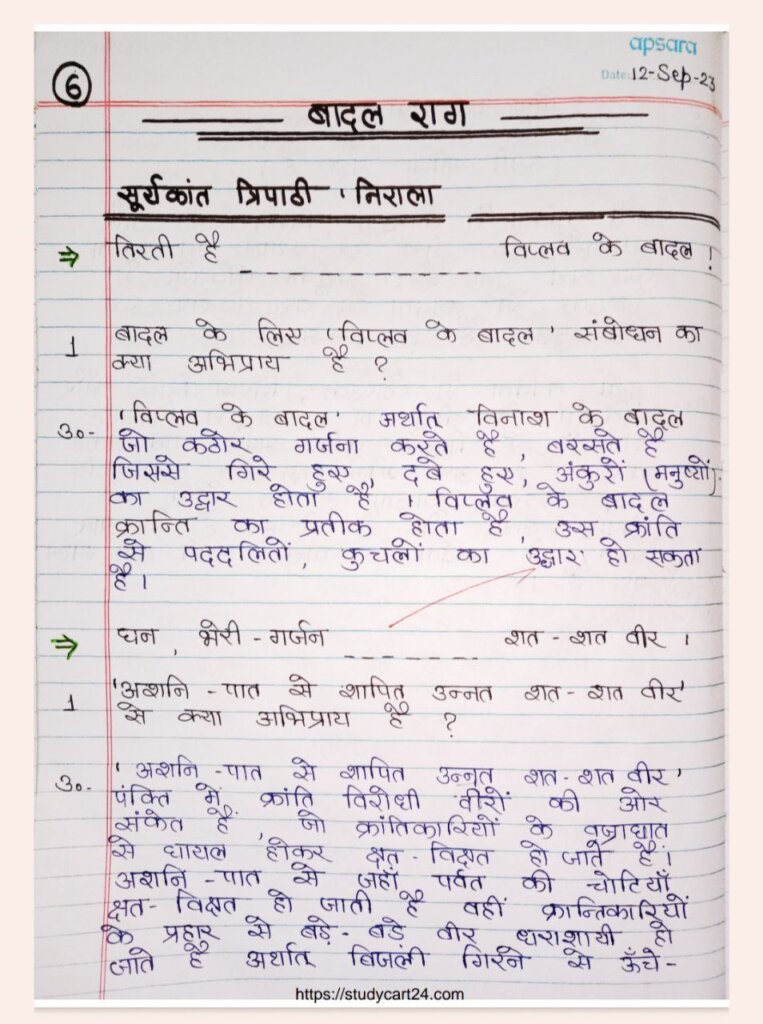 apsara
Date: 12-Sep-23
6
बादल राग
सूर्यकांत त्रिपाठी 'निराला
⇒ तिरती है ----------- विप्लव के बादल !
1 बादल के लिए 'विप्लव के बादल' संबोधन का
क्या अभिप्राय है ?
उ०- 'विप्लव के बादल' अर्थात् विनाश के बादल
जो कठोर गर्जना करते है, बरसते है
जिससे गिरे हुए, दबे हुए, अंकुरों (मनुष्यों)
का उद्धार होता है । विप्लव के बादल
क्रान्ति का प्रतीक होता है, उस क्रांति
से पददलितों, कुचलों का उद्धार हो सकता
है।
⇒ घन, भेरी - गर्जन ------ शत - शत वीर ।
1 'अशनि - पात से शापित उन्नत शत - शत वीर'
से क्या अभिप्राय है ?
उ०- 'अशनि - पात से शापित उन्नत शत - शत वीर'
पंक्ति में क्रांति विरोधी वीरों की ओर
संकेत हैं, जो क्रांतिकारियों के वज्राघात
से घायल होकर क्षत - विक्षत हो जाते है।
अशनि - पात से जहाँ पर्वत की चोटियाँ
क्षत - विक्षत हो जाती है वहीं क्रान्तिकारियों
के प्रहार से बड़े - बड़े वीर धराशायी हो
जाते है अर्थात् बिजली गिरने से ऊँचे -
https://studycart24.com